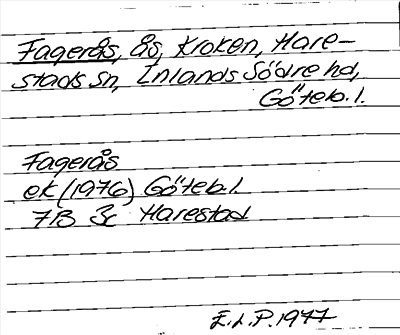 Fagerås, ås, Kroken, Hare-
stads sn, Inlands Södre hd,
Göteb. l.
Fagerås
ek (1976) Göteb. l.
7B 3c Harestad
E.L.P. 1977